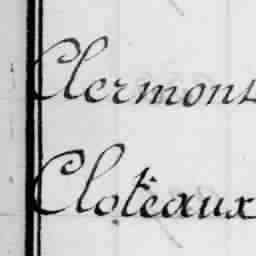 Clermont
Cloteaux